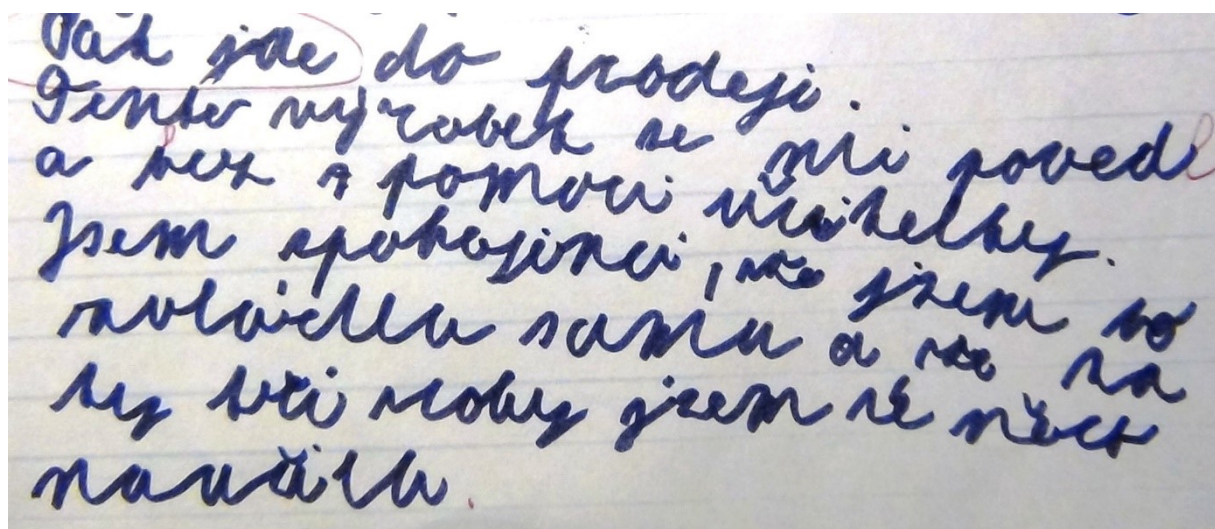 Pak jde do prodeji.
Tento výrobek se mi povedl
a bez pomoci učitelky.
Jsem spokojená, že jsem to
zvládla sama a že za
ty tři roky jsem se něco
naučila.